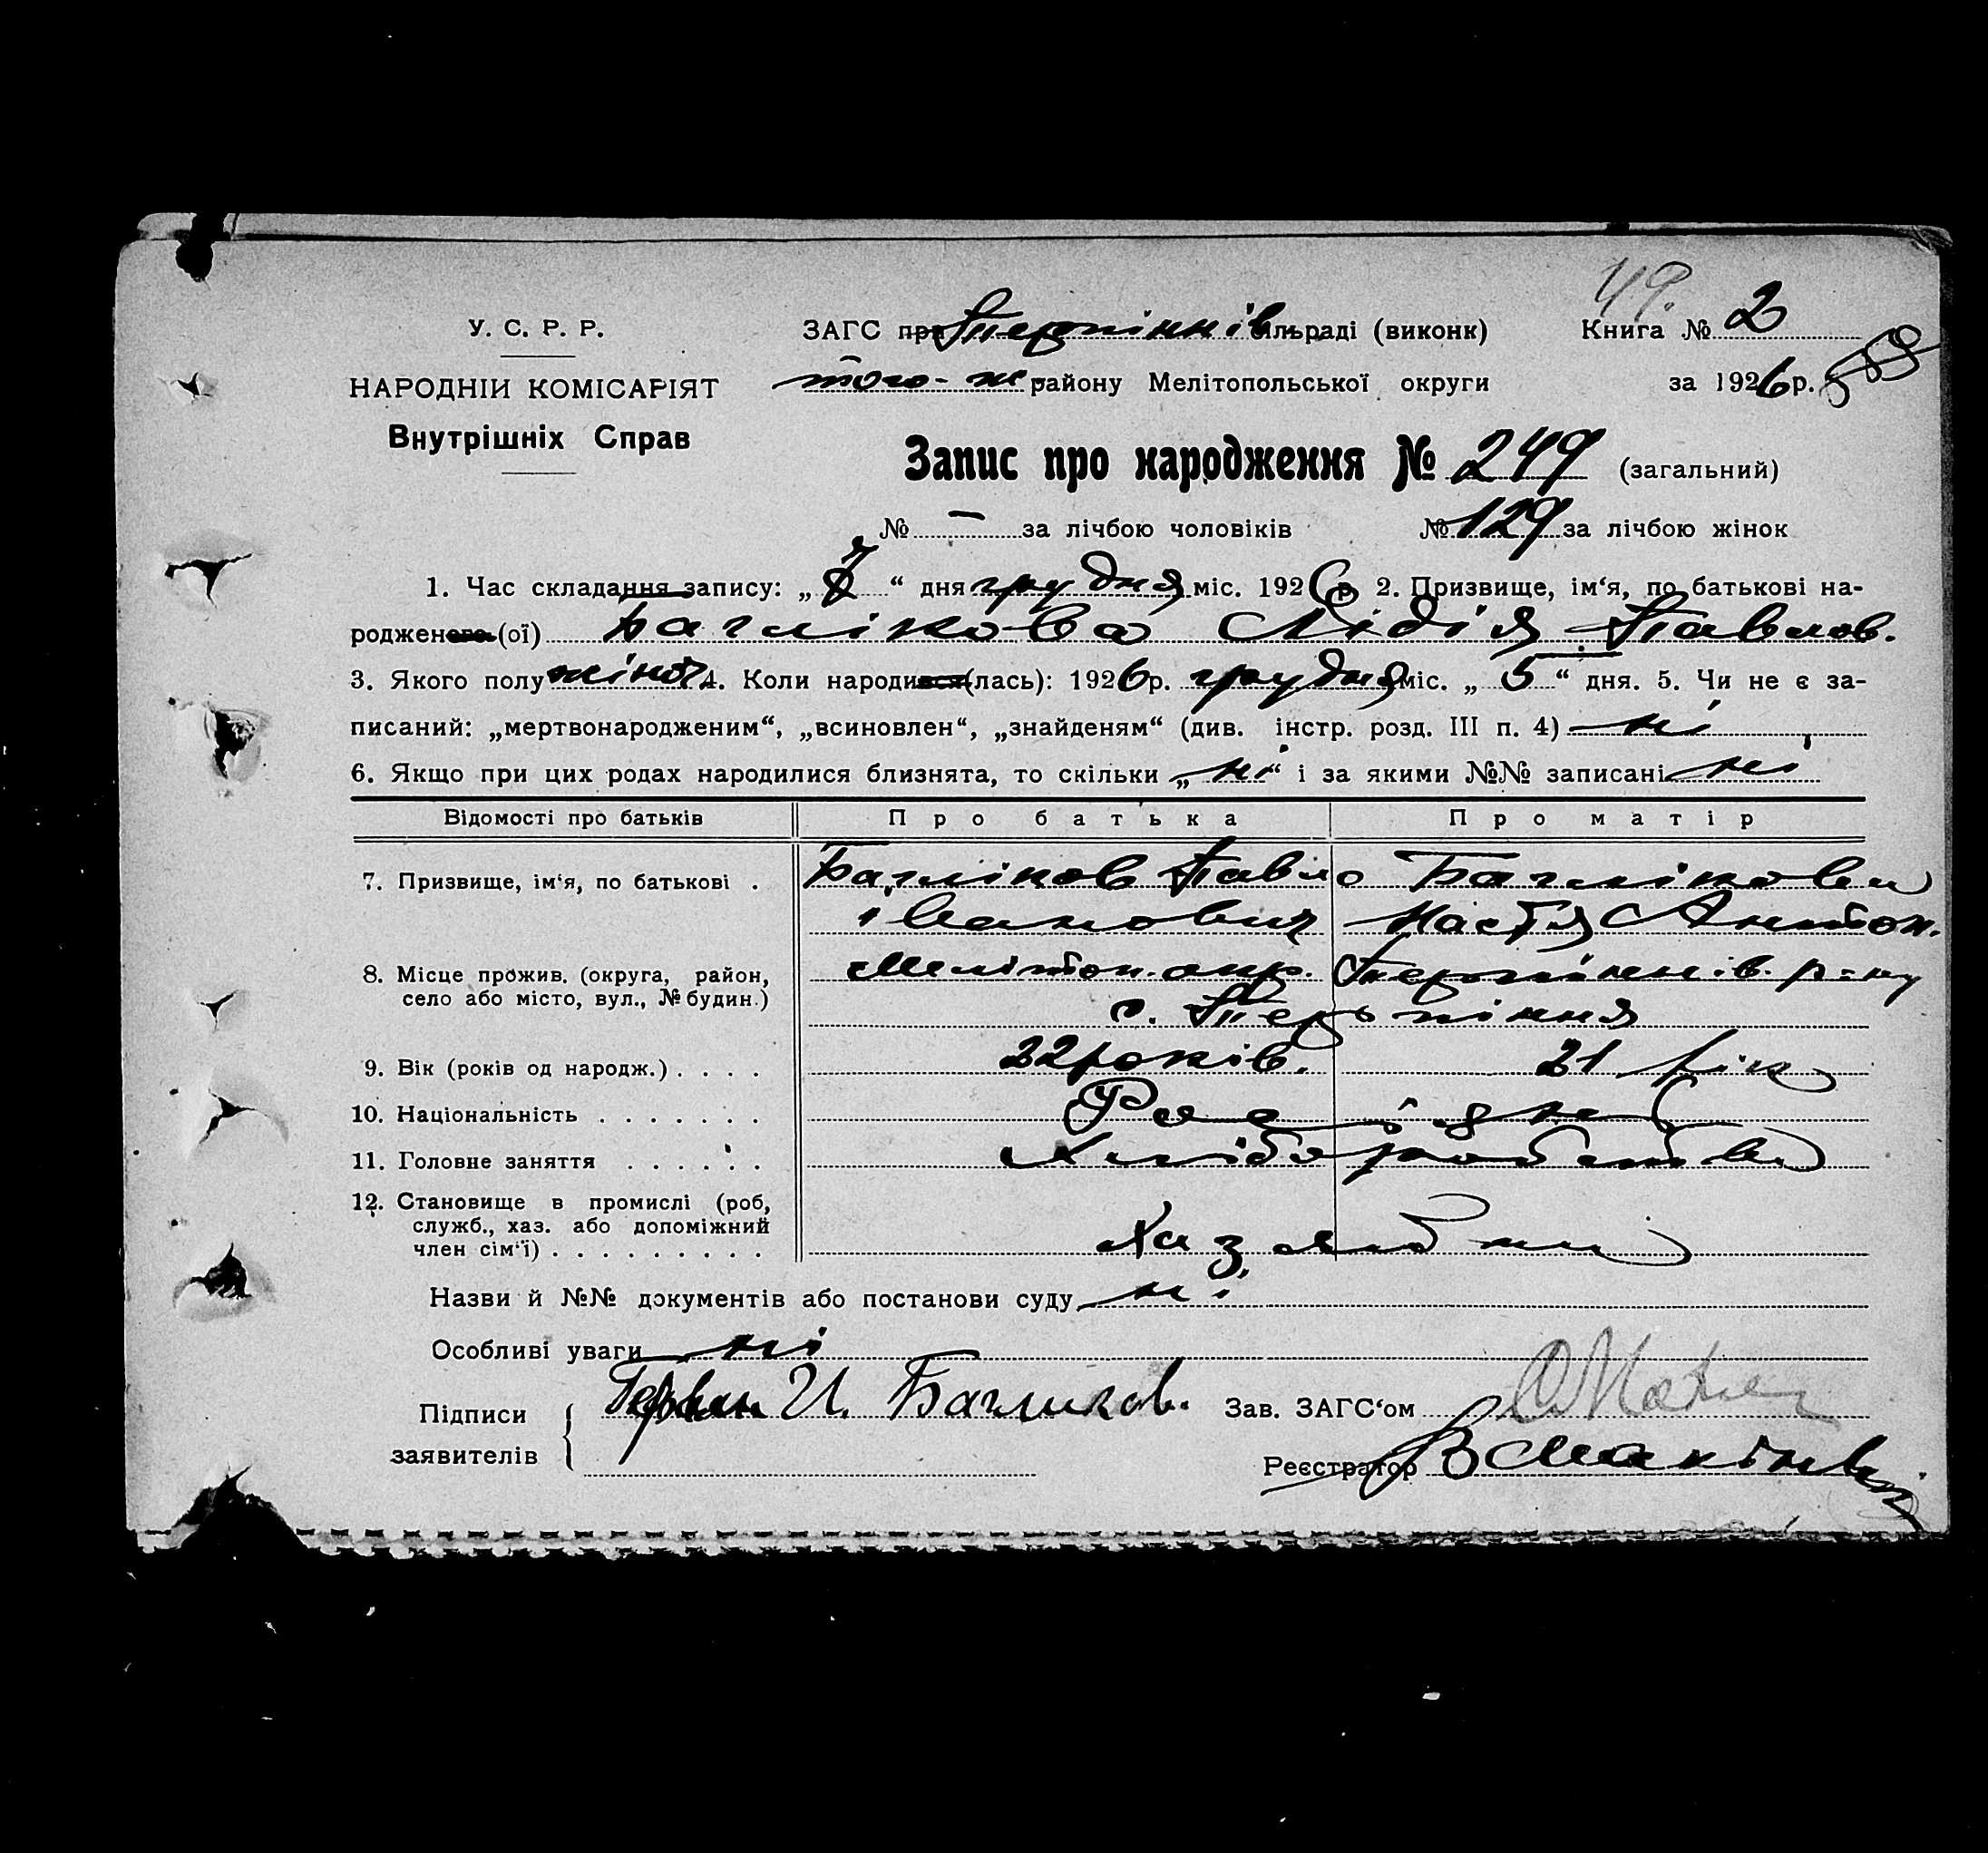 49.
У. С. Р. Р. ЗАГС при Терпіннів. сільраді (виконк) Книга № 2
НАРОДНІЙ КОМІСАРІЯТ того-ж району Мелітопольської округи за 1926 р.
Внутрішніх Справ
Запис про народження № 249 (загальний)
№ — за лічбою чоловіків № 129 за лічбою жінок
1. Час складання запису: „7“ дня грудня міс. 1926 р. 2. Призвище, ім‘я, по батькові на-
родженого (ої) Баглікова Лідія Павлов.
3. Якого полу жіноч. 4. Коли народився (лась): 1926 р. грудня міс. „5“ дня. 5. Чи не є за-
писаний: „мертвонародженим“, „всиновлен“, „знайденям“ (див. інстр. розд. III п. 4) ні
6. Якщо при цих родах народилися близнята, то скільки „ні“ і за якими №№ записані ні
Відомості про батьків Про батька Про матір
7. Призвище, ім‘я, по батькові . Багліков Павло Баглікова
Іванович Настя Антон.
8. Місце прожив. (округа, район, Мелітоп. окр. Терпіннів. р-ну
село або місто, вул., № будин.) с. Терпіння
9. Вік (років од народж.) . . . . 22 років. 21 рік
10. Національність . . . . . . .
11. Головне заняття . . . . . . Хліборобство
12. Становище в промислі (роб,
служб., хаз. або допоміжний
член сім‘ї) . . . . . . . . .
Назви й №№ документів або постанови суду ні
Особливі уваги ні
Підписи И. Багликов. Зав. ЗАГС‘ом
заявителів Реєстратор В